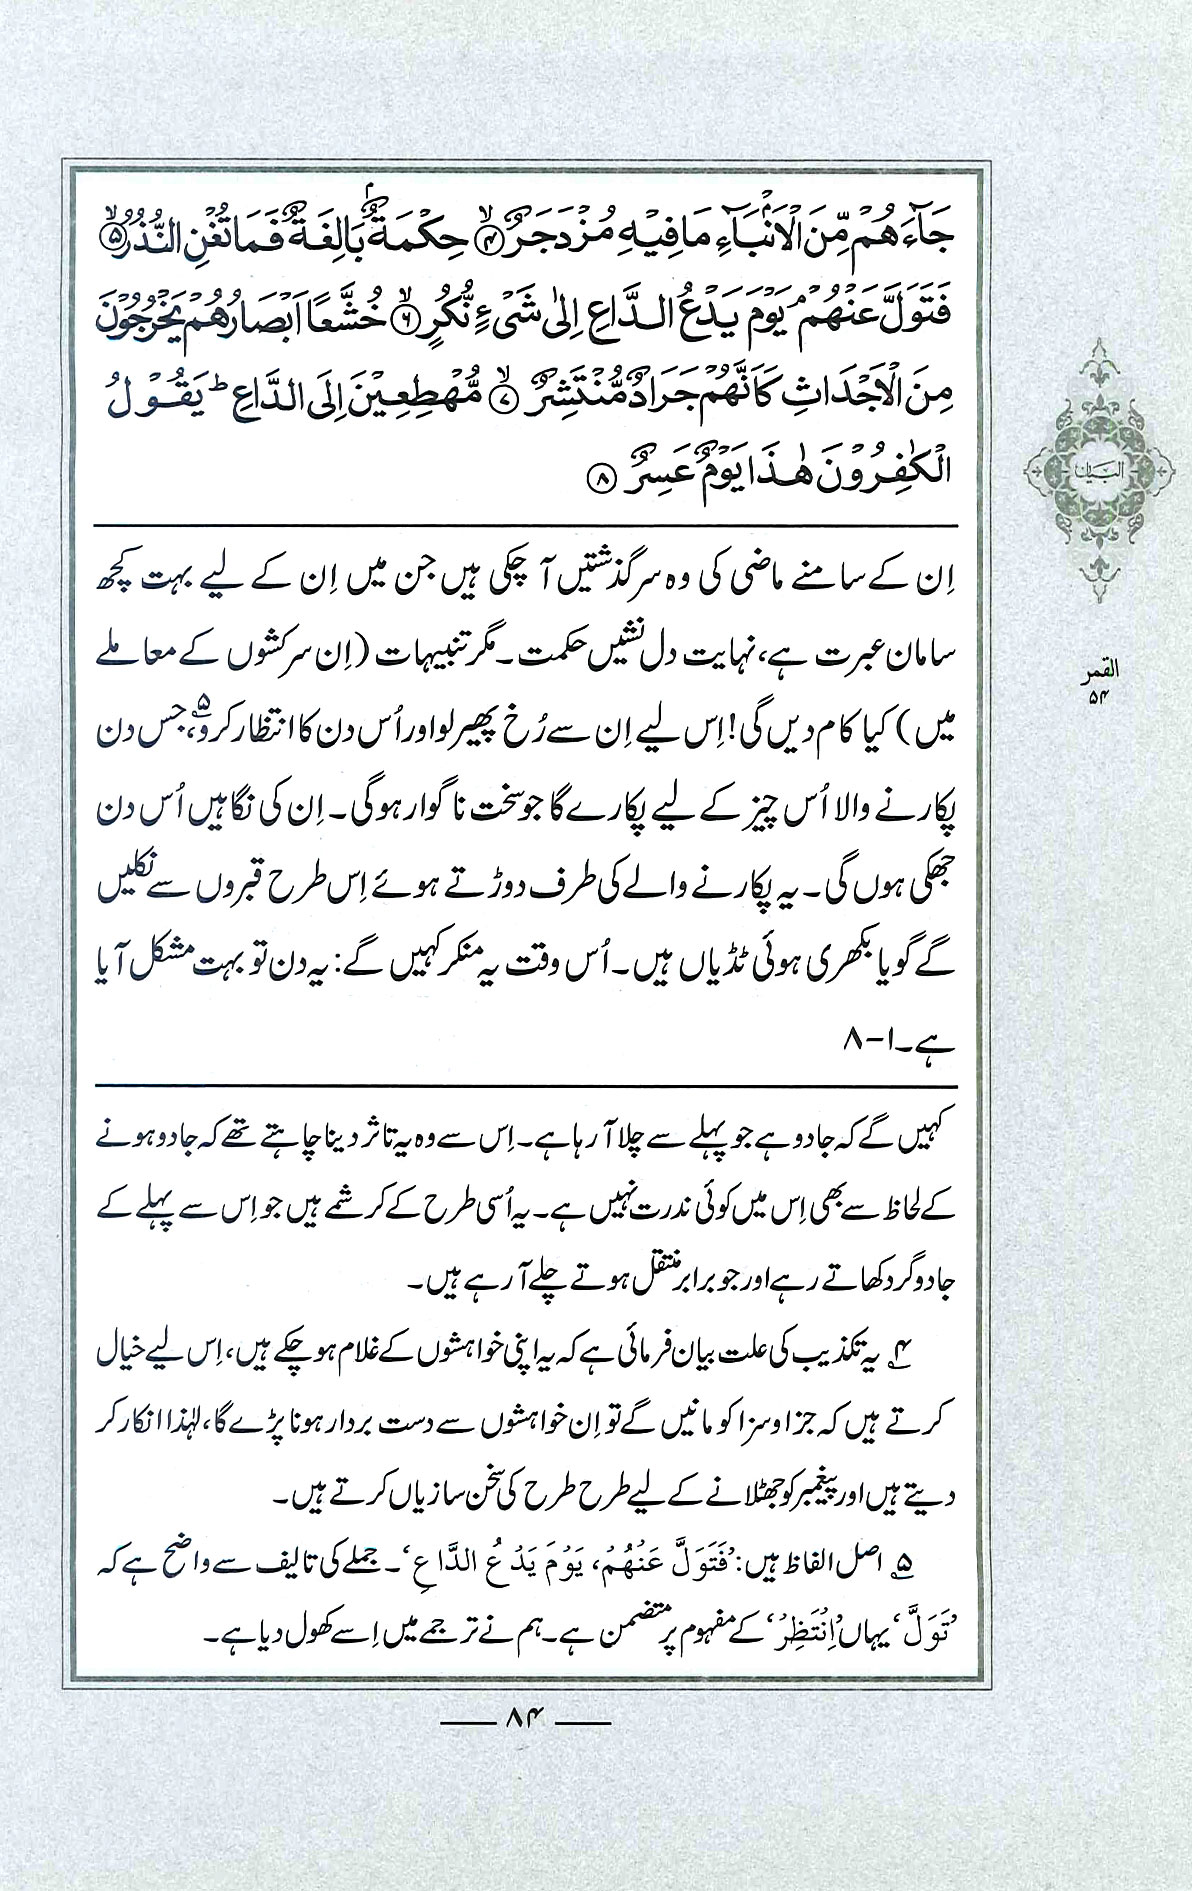 جَآءَهُمْ مِّنَ الْاَنْۢبَآءِ مَا فِيْهِ مُزْدَجَرٌ ۙ﴿۴﴾ حِكْمَةٌۢ بَالِغَةٌ فَمَا تُغْنِ النُّذُرُ ۙ﴿۵﴾
فَتَوَلَّ عَنْهُمْ ۘ يَوْمَ يَدْعُ الدَّاعِ اِلٰى شَىْءٍ نُّكُرٍ ۙ﴿۶﴾ خُشَّعًا اَبْصَارُهُمْ يَخْرُجُوْنَ
مِنَ الْاَجْدَاثِ كَاَنَّهُمْ جَرَادٌ مُّنْتَشِرٌ ۙ﴿۷﴾ مُّهْطِعِيْنَ اِلَى الدَّاعِ ؕ يَقُوْلُ
الْكٰفِرُوْنَ هٰذَا يَوْمٌ عَسِرٌ ﴿۸﴾
اِن کے سامنے ماضی کی وہ سرگذشتیں آ چکی ہیں جن میں اِن کے لیے بہت کچھ
سامان عبرت ہے، نہایت دل نشیں حکمت۔ مگر تنبیہات (اِن سرکشوں کے معاملے
میں) کیا کام دیں گی! اِس لیے اِن سے رُخ پھیر لو اور اُس دن کا انتظار کرو،۵ جس دن
پکارنے والا اُس چیز کے لیے پکارے گا جو سخت ناگوار ہوگی۔ اِن کی نگاہیں اُس دن
جھکی ہوں گی۔ یہ پکارنے والے کی طرف دوڑتے ہوئے اِس طرح قبروں سے نکلیں
گے گویا بکھری ہوئی ٹڈیاں ہیں۔ اُس وقت یہ منکر کہیں گے: یہ دن تو بہت مشکل آیا
ہے۔ ۱-۸
کہیں گے کہ جادو ہے جو پہلے سے چلا آ رہا ہے۔ اِس سے وہ یہ تاثر دینا چاہتے تھے کہ جادو ہونے
کے لحاظ سے بھی اِس میں کوئی ندرت نہیں ہے۔ یہ اُسی طرح کے کرشمے ہیں جو اِس سے پہلے کے
جادوگر دکھاتے رہے اور جو برابر منتقل ہوتے چلے آ رہے ہیں۔
۴؂ یہ تکذیب کی علت بیان فرمائی ہے کہ یہ اپنی خواہشوں کے غلام ہو چکے ہیں، اِس لیے خیال
کرتے ہیں کہ جزا و سزا کو مانیں گے تو اِن خواہشوں سے دست بردار ہونا پڑے گا، لہٰذا انکار کر
دیتے ہیں اور پیغمبر کو جھٹلانے کے لیے طرح طرح کی سخن سازیاں کرتے ہیں۔
۵؂ اصل الفاظ ہیں: ’فَتَوَلَّ عَنْهُمْ، يَوْمَ يَدْعُ الدَّاعِ‘۔ جملے کی تالیف سے واضح ہے کہ
’تَوَلَّ‘ یہاں ’اِنْتَظِرْ‘ کے مفہوم پر متضمن ہے۔ ہم نے ترجمے میں اِسے کھول دیا ہے۔
البیان
القمر
۵۴
۸۴